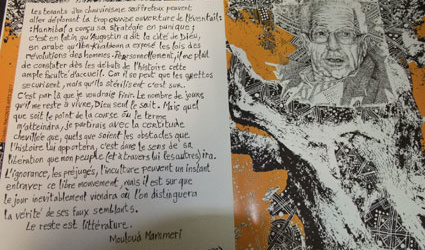 Les tenants d'un chauvinisme souffreteux peuvent
aller déplorant la trop grande ouverture de l'éventail :
Hannibal a conçu sa stratégie en punique ;
c'est en latin qu'Augustin a dit la cité de Dieu,
en arabe qu'Ibn-Khaldoun a exposé les lois des
révolutions des hommes. Personnellement, il me plait
de constater dès les débuts de l'histoire cette
ample faculté d'accueil. Car il se peut que les ghettos
sécurisent, mais qu'ils stérilisent c'est sûr.
C'est par là que je voudrais finir. Le nombre de jours
qu'il me reste à vivre, Dieu seul le sait. Mais quel
que soit le point de la course où le terme
m'atteindra, je partirais avec la certitude
chevillée que, quels que soient les obstacles que
l'histoire lui apportera, c'est dans le sens de sa
libération que mon peuple (et à travers lui les autres) ira.
L'ignorance, les préjugés, l'inculture peuvent un instant
entraver ce libre mouvement, mais il est sûr que
le jour inévitablement viendra où l'on distinguera
la vérité de ses faux semblants.
Le reste est littérature.
Mouloud Mammeri